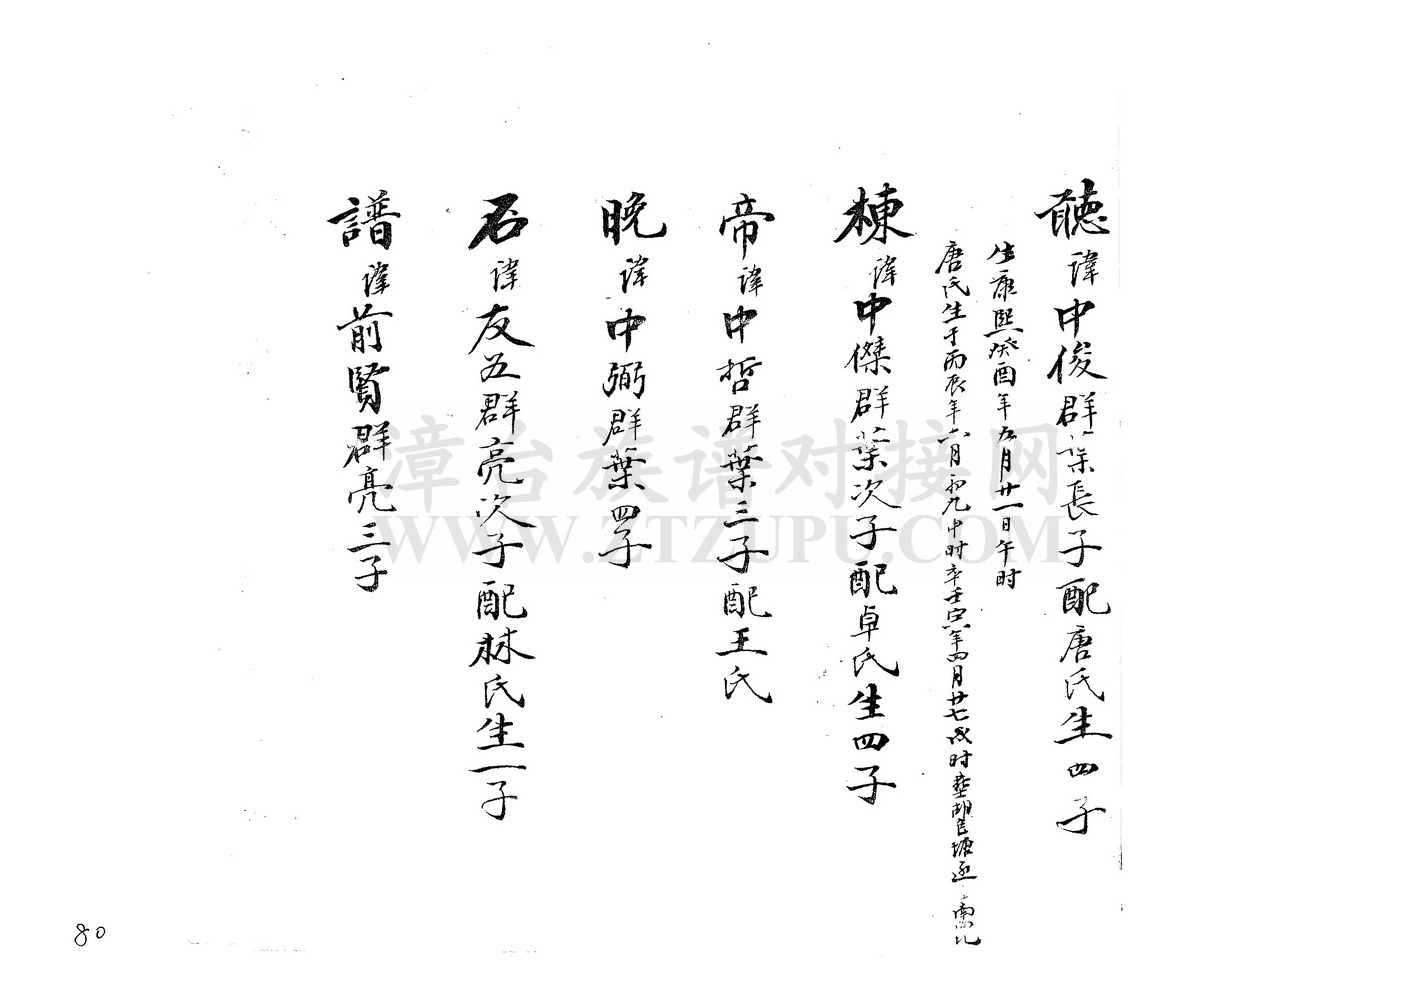 聽諱中俊群葉長子配唐氏生四子
生康熙癸酉年五月廿一日午时
唐氏生于丙辰年六月初九申时卒壬寅年四月廿七戌时塟
棟諱中傑群葉次子配卓氏生四子
帝諱中哲群葉三子配王氏
晚諱中弼群葉四子
石諱友五群亮次子配林氏生一子
譜諱前賢群亮三子
漳台族谱对接网
WWW.ZTZUPU.COM
80